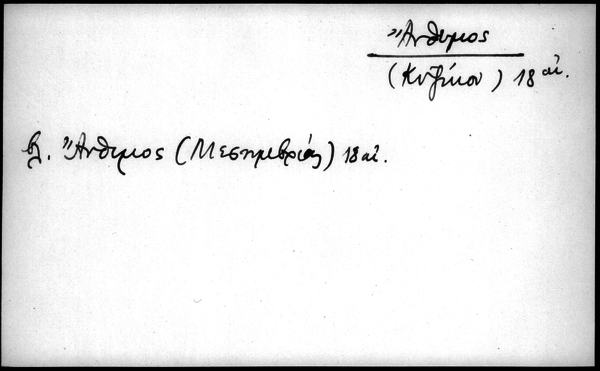 Ἄνθιμος
(Κυζίκου) 18 αἰ.
βλ. Ἄνθιμος (Μεσημβρίας) 18 αἰ.